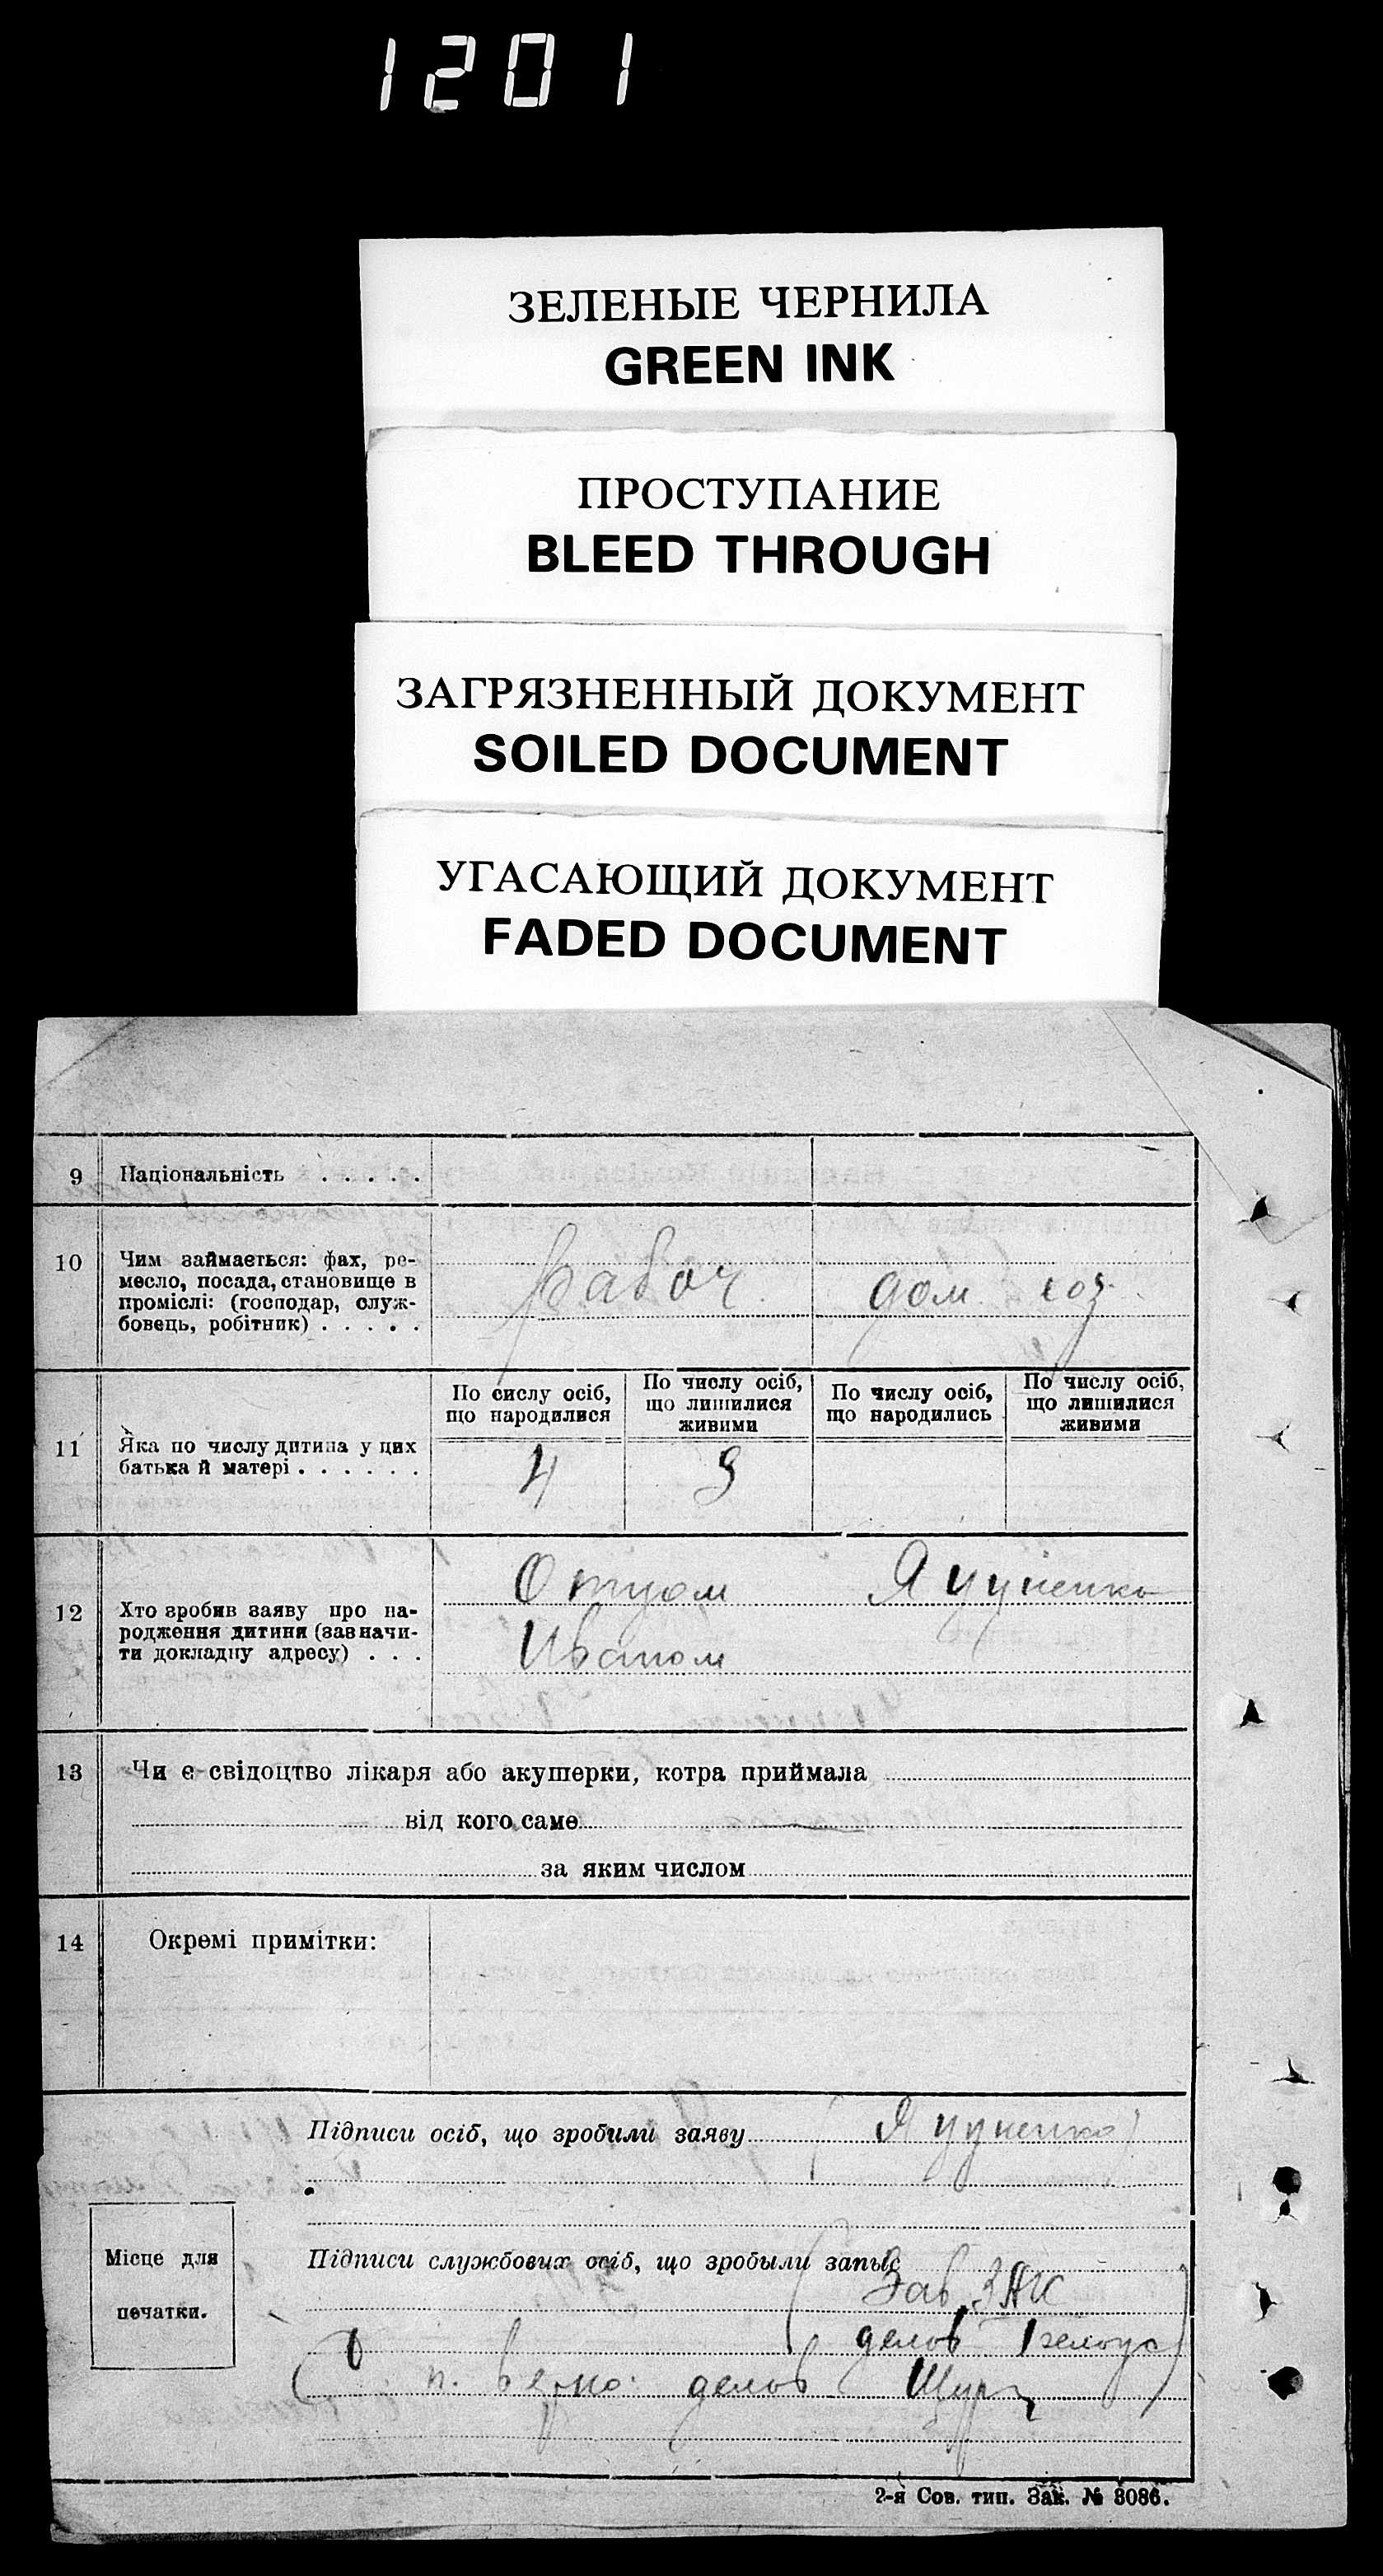 1201
ЗЕЛЕНЫЕ ЧЕРНИЛА
GREEN INK
ПРОСТУПАНИЕ
BLEED THROUGH
ЗАГРЯЗНЕННЫЙ ДОКУМЕНТ
SOILED DOCUMENT
УГАСАЮЩИЙ ДОКУМЕНТ
FADED DOCUMENT
9 Національність . . . . .
10 Чим займається: фах, ре-
месло, посада, становище в
проміслі: (господар, служ-
бовець, робітник) . . . . .
рабоч. дом хоз.
11 Яка по числу дитина у цих
батька й матері . . . . . .
По сислу осіб,
що народилися
По числу осіб,
що лишилися
живими
По числу осіб,
що народились
По числу осіб,
що лишилися
живими
4 3
12 Хто зробив заяву про на-
родження дитини (зазначи-
ти докладну адресу) . . .
Отцом
Иваном
13 Чи є свідоцтво лікаря або акушерки, котра приймала
від кого саме
за яким числом
14 Окремі примітки:
Підписи осіб, що зробили заяву
Підписи службових осіб, що зробыли запыс
Зав. ЗАГС
делов
п. верно: делов
Місце для
печатки.
2-я Сов. тип. Зак. № 3086.